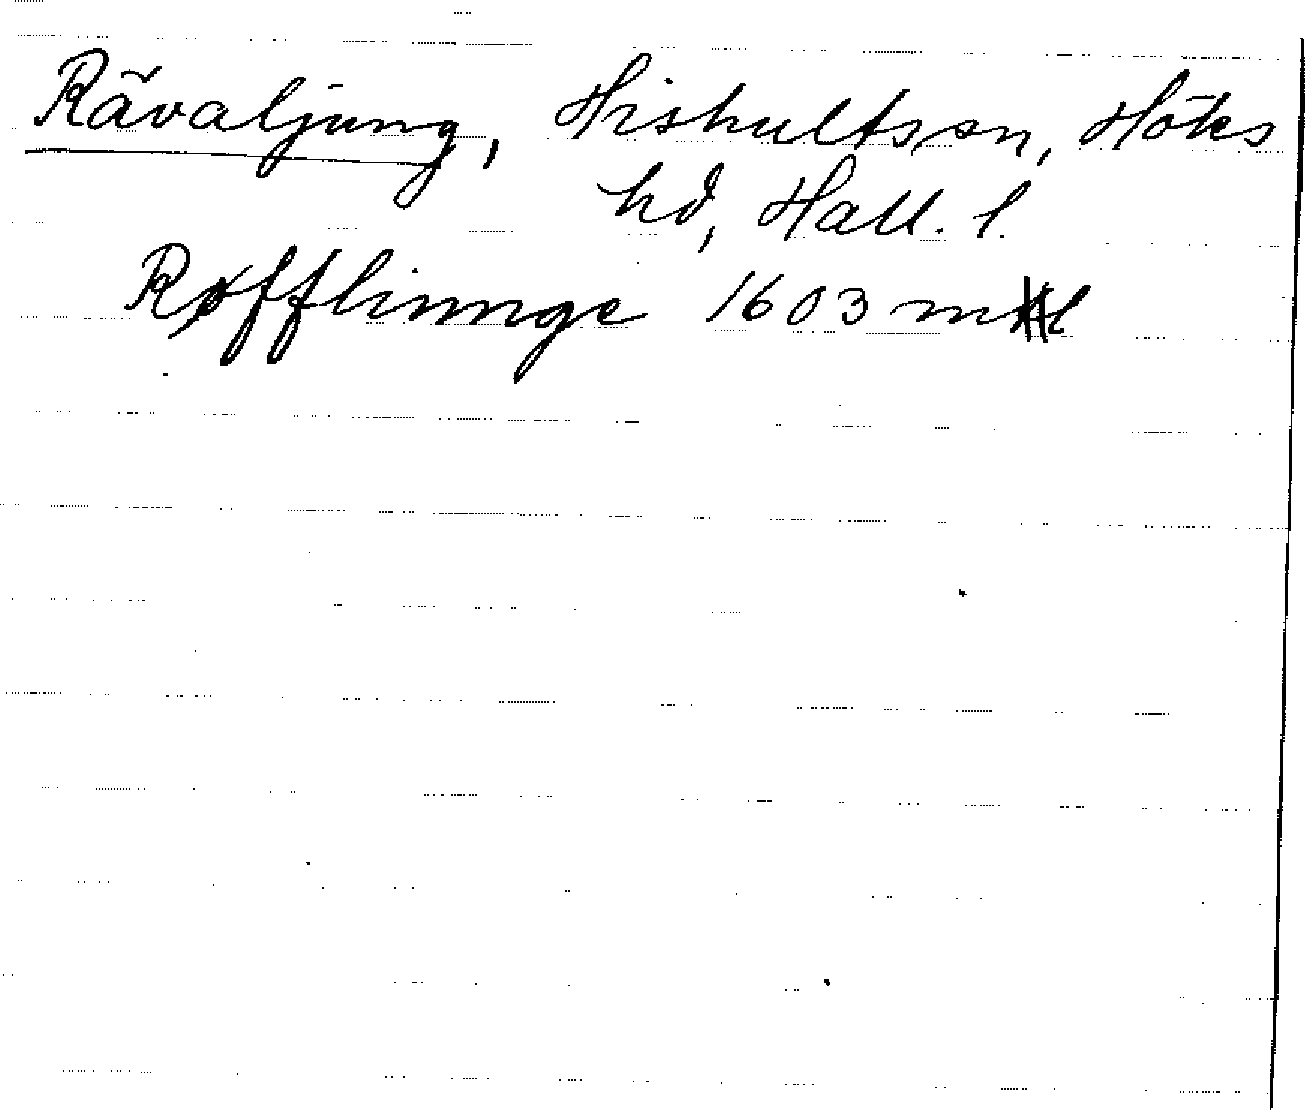 Rävaljung, Hishultssn, Höks
hd, Hall. l.
Røfflinnge 1603 ml